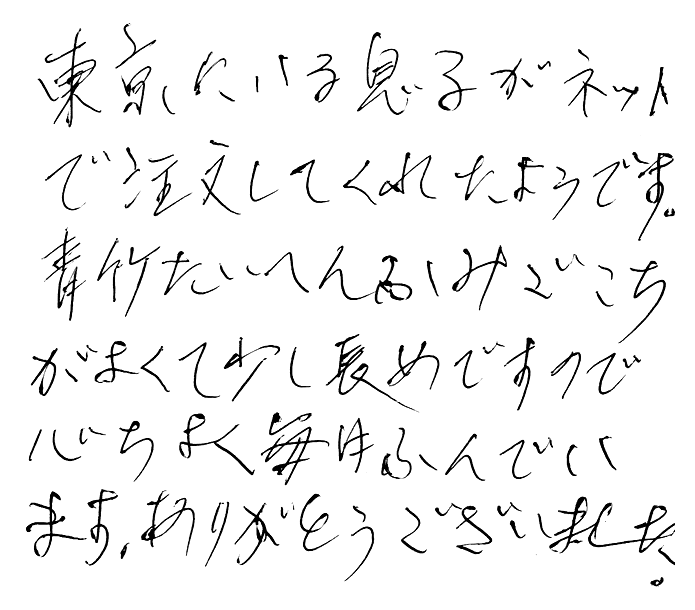 東京にいる息子がネット
で注文してくれたようです。
青竹たいへんふみごこち
がよくて少し長めですので
心ぢよく毎日ふんでい
ます。ありがとうございました。